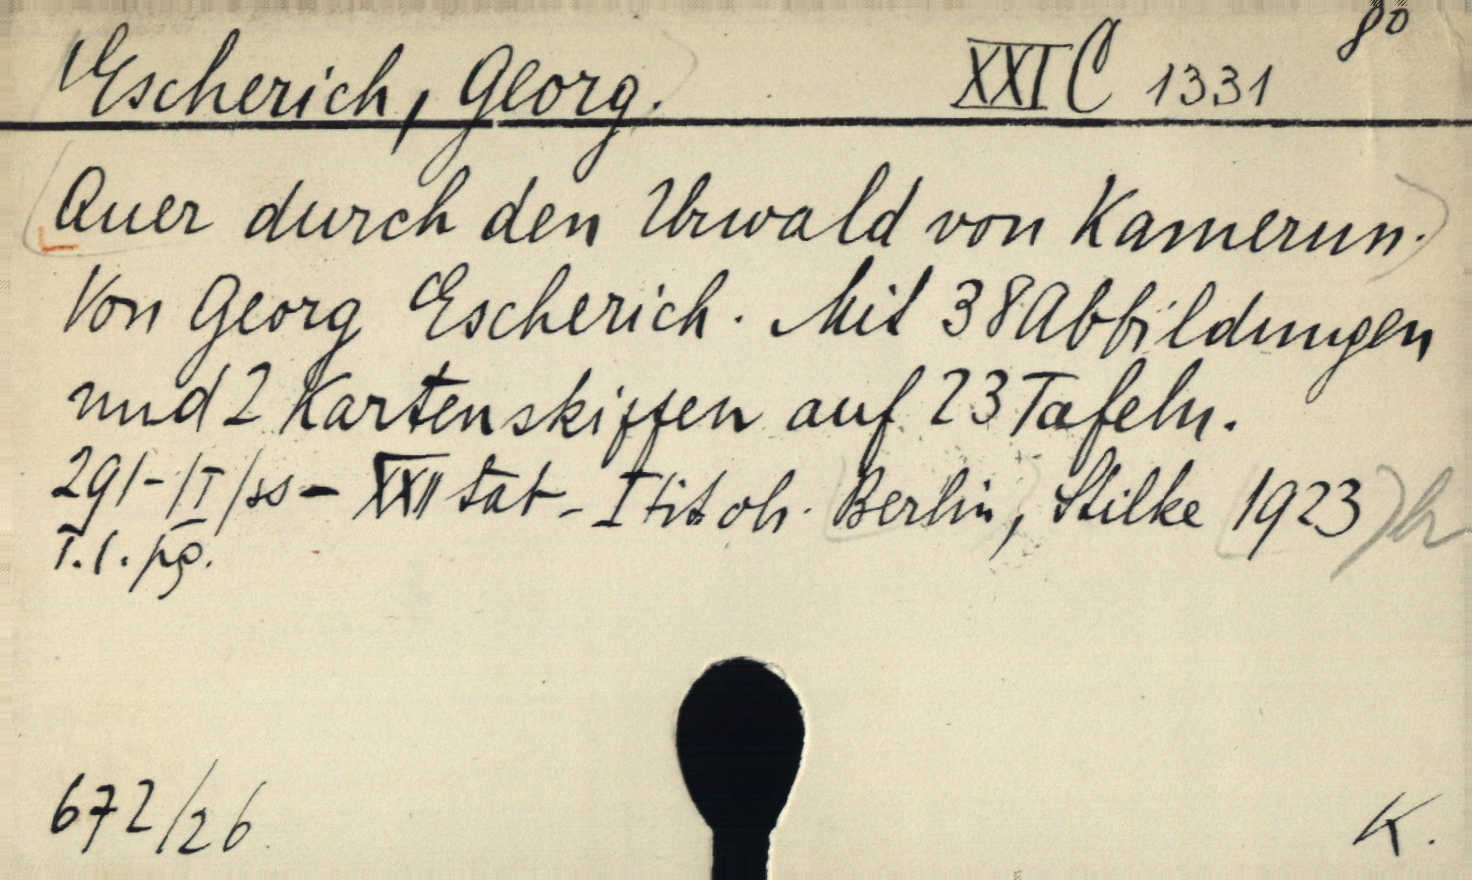 Escherich, Georg. XXI C 1331 8o
Quer durch den Urwald von Kamerun.
Von Georg Escherich. Mit 38 Abbildungen
und 2 Kartenskizzen auf 23 Tafeln.
291 - /I/ss - XXII táb - I tit oh. Berlin, Stilke 1923
T. l. pg.
672/26
K.